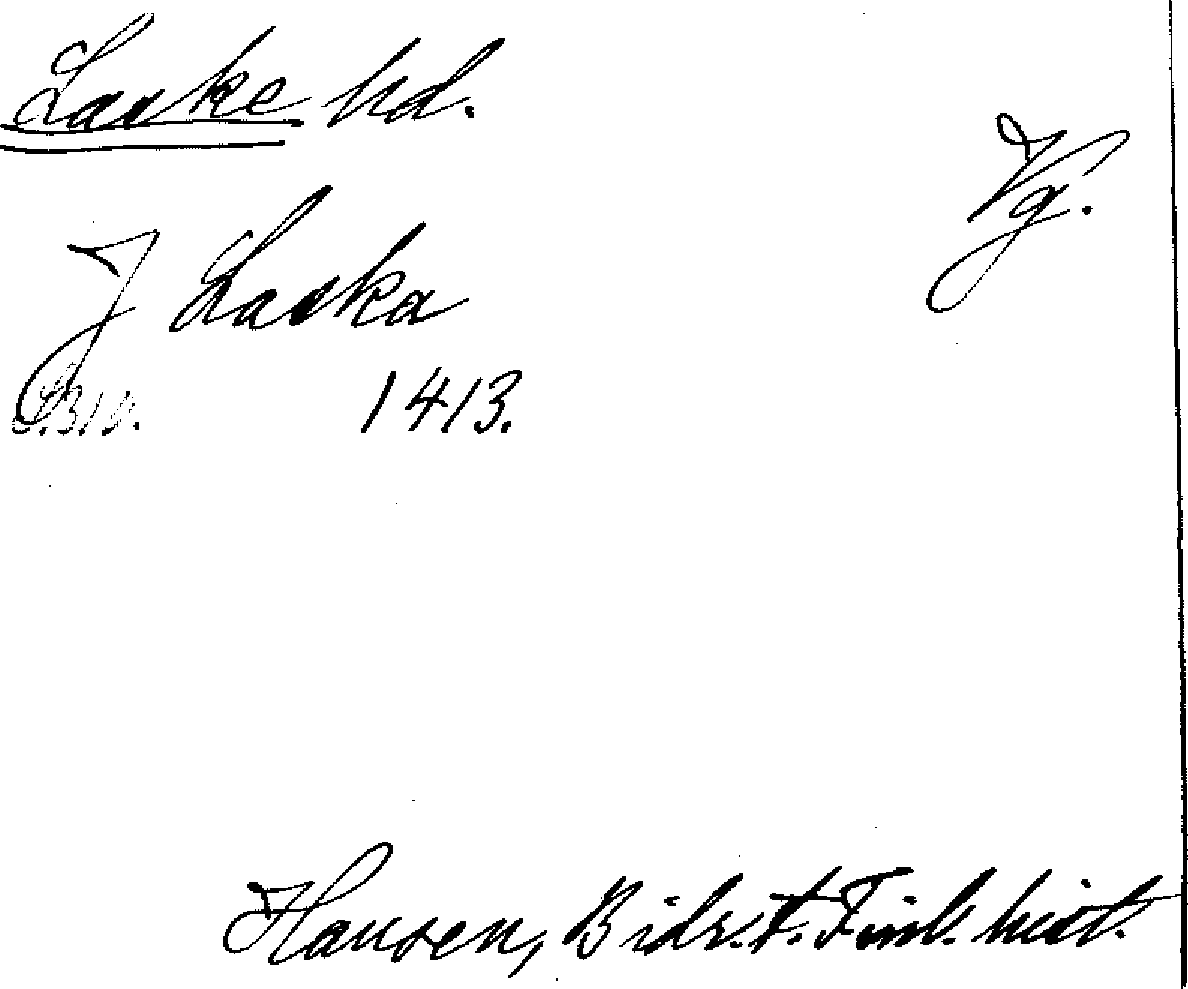 Laske hd.
Vg.
J Laska
1413.
Hausen, Bidr. t. Finl. hist.